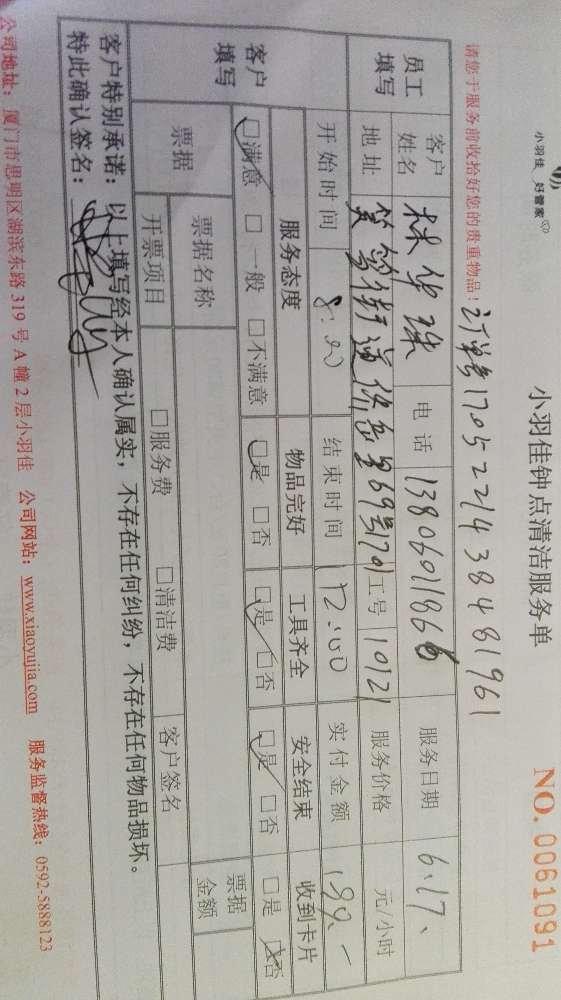 小羽佳 好管家
小羽佳钟点清洁服务单
NO. 0061091
请您于服务前收拾好您的贵重物品！
订单号1705221438481961
员工填写 客户姓名 林华珠 电话 13806011866 服务日期 6.17、
地址 筼筜街道依岳里69号701 工号 10121 服务价格 元/小时
开始时间 8:00 结束时间 12:00 实付金额 189.-
客户填写 服务态度 物品完好 工具齐全 安全结束 收到卡片
□满意 □一般 □不满意 □是 □否 □是 □否 □是 □否 □是 □否
票据 票据名称 票据金额
开票项目 □服务费 □清洁费 客户签名
客户特别承诺：以上填写经本人确认属实，不存在任何纠纷，不存在任何物品损坏。
特此确认签名：
公司地址：厦门市思明区湖滨东路 319 号 A 幢 2 层小羽佳 公司网站：www.xiaoyujia.com 服务监督热线：0592-5888123